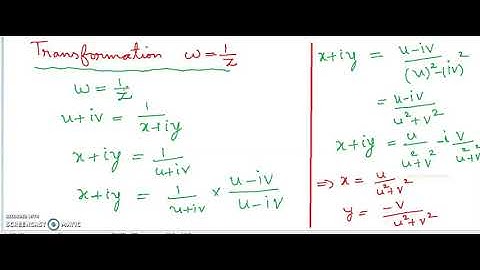 Transformation ω = 1/z
ω = 1/z
u+iv = 1/(x+iy)
x+iy = 1/(u+iv)
x+iy = 1/(u+iv) × (u-iv)/(u-iv)
x+iy = (u-iv)/((u)²-(iv)²)
= (u-iv)/(u²+v²)
x+iy = u/(u²+v²) - i v/(u²+v²)
⇒ x = u/(u²+v²)
y = -v/(u²+v²)
RECORDED WITH
SCREENCAST-O-MATIC